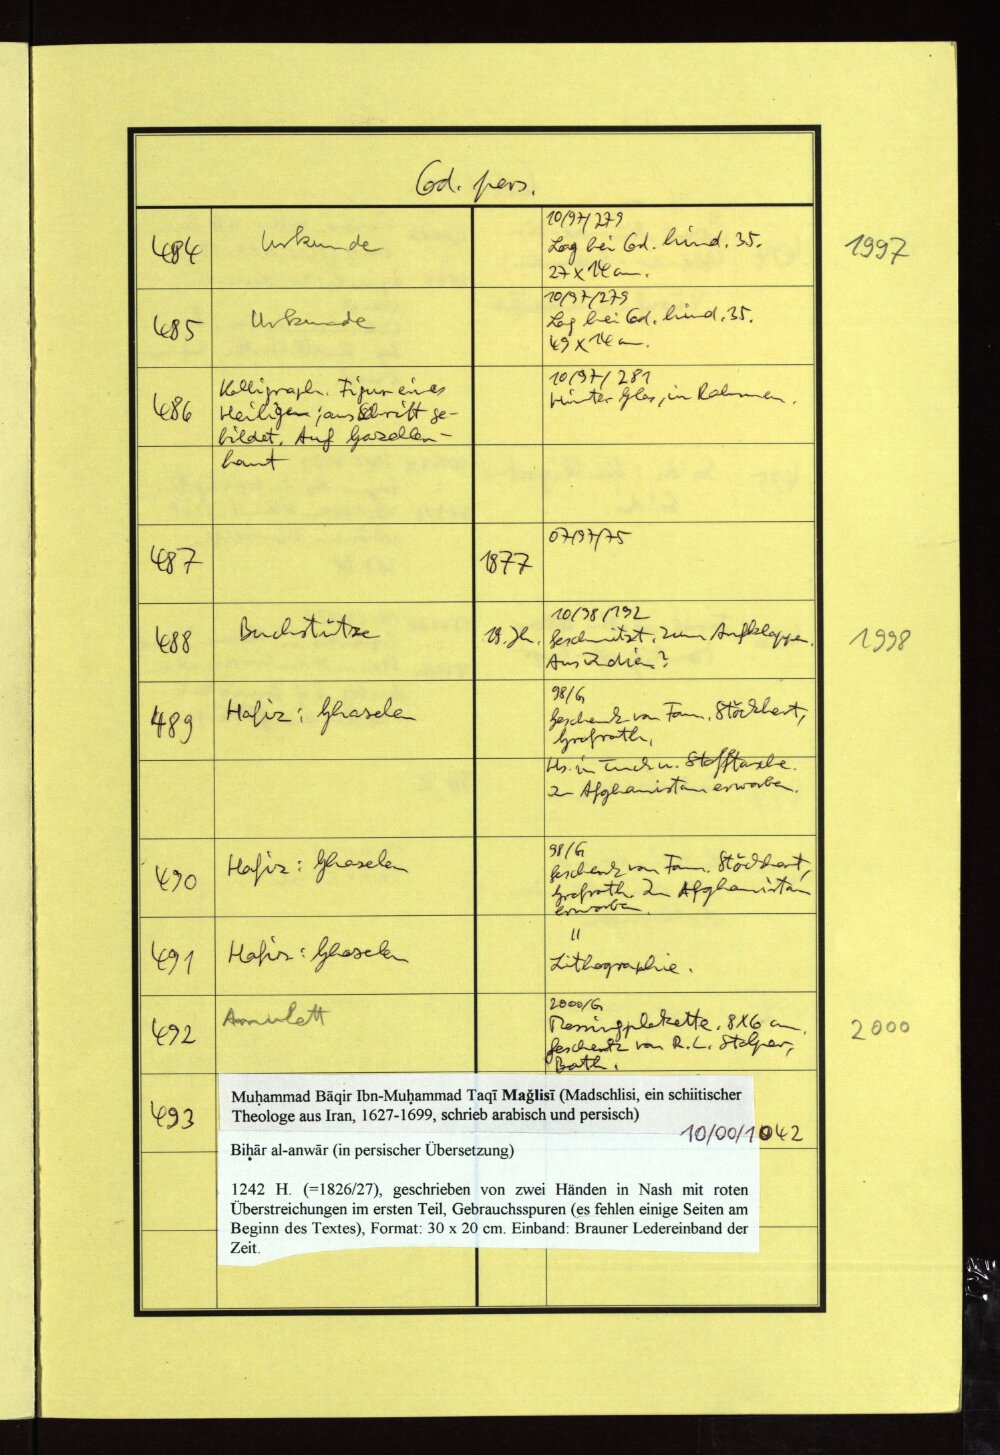 Cod. pers.
484 Urkunde 10/97/279
Lag bei Cod. hind. 35.
27 x 14 cm.
1997
485 Urkunde 10/97/279
Lag bei Cod. hind. 35.
49 x 14 cm.
486 Kalligraph. Figur eines
Heiligen, aus Schrift ge-
bildet. Auf Gazellen-
haut
10/97/281
Hinter Glas, in Rahmen.
487 1877 07/97/75
488 Buchstütze 19. Jh. 10/98/192
Geschnitzt. Zum Aufklappen.
Aus Indien?
1998
489 Hafiz: Ghaselen 98/G
Geschenk von Fam. Stöckhert,
Grafrath.
Hs. in Tuch u. Stofftasche.
In Afghanistan erworben.
490 Hafiz: Ghaselen 98/G
Geschenk von Fam. Stöckhert,
Grafrath. In Afghanistan
erworben.
491 Hafiz: Ghaselen "
Lithographie.
492 Amulett 2000/G
Messingplakette. 8x6 cm.
Geschenk von R.L. Stolper,
Bath.
2000
493
Muḥammad Bāqir Ibn-Muḥammad Taqī Maǧlisī (Madschlisi, ein schiitischer
Theologe aus Iran, 1627-1699, schrieb arabisch und persisch)
10/00/1042
Biḥār al-anwār (in persischer Übersetzung)
1242 H. (=1826/27), geschrieben von zwei Händen in Nash mit roten
Überstreichungen im ersten Teil, Gebrauchsspuren (es fehlen einige Seiten am
Beginn des Textes), Format: 30 x 20 cm. Einband: Brauner Ledereinband der
Zeit.